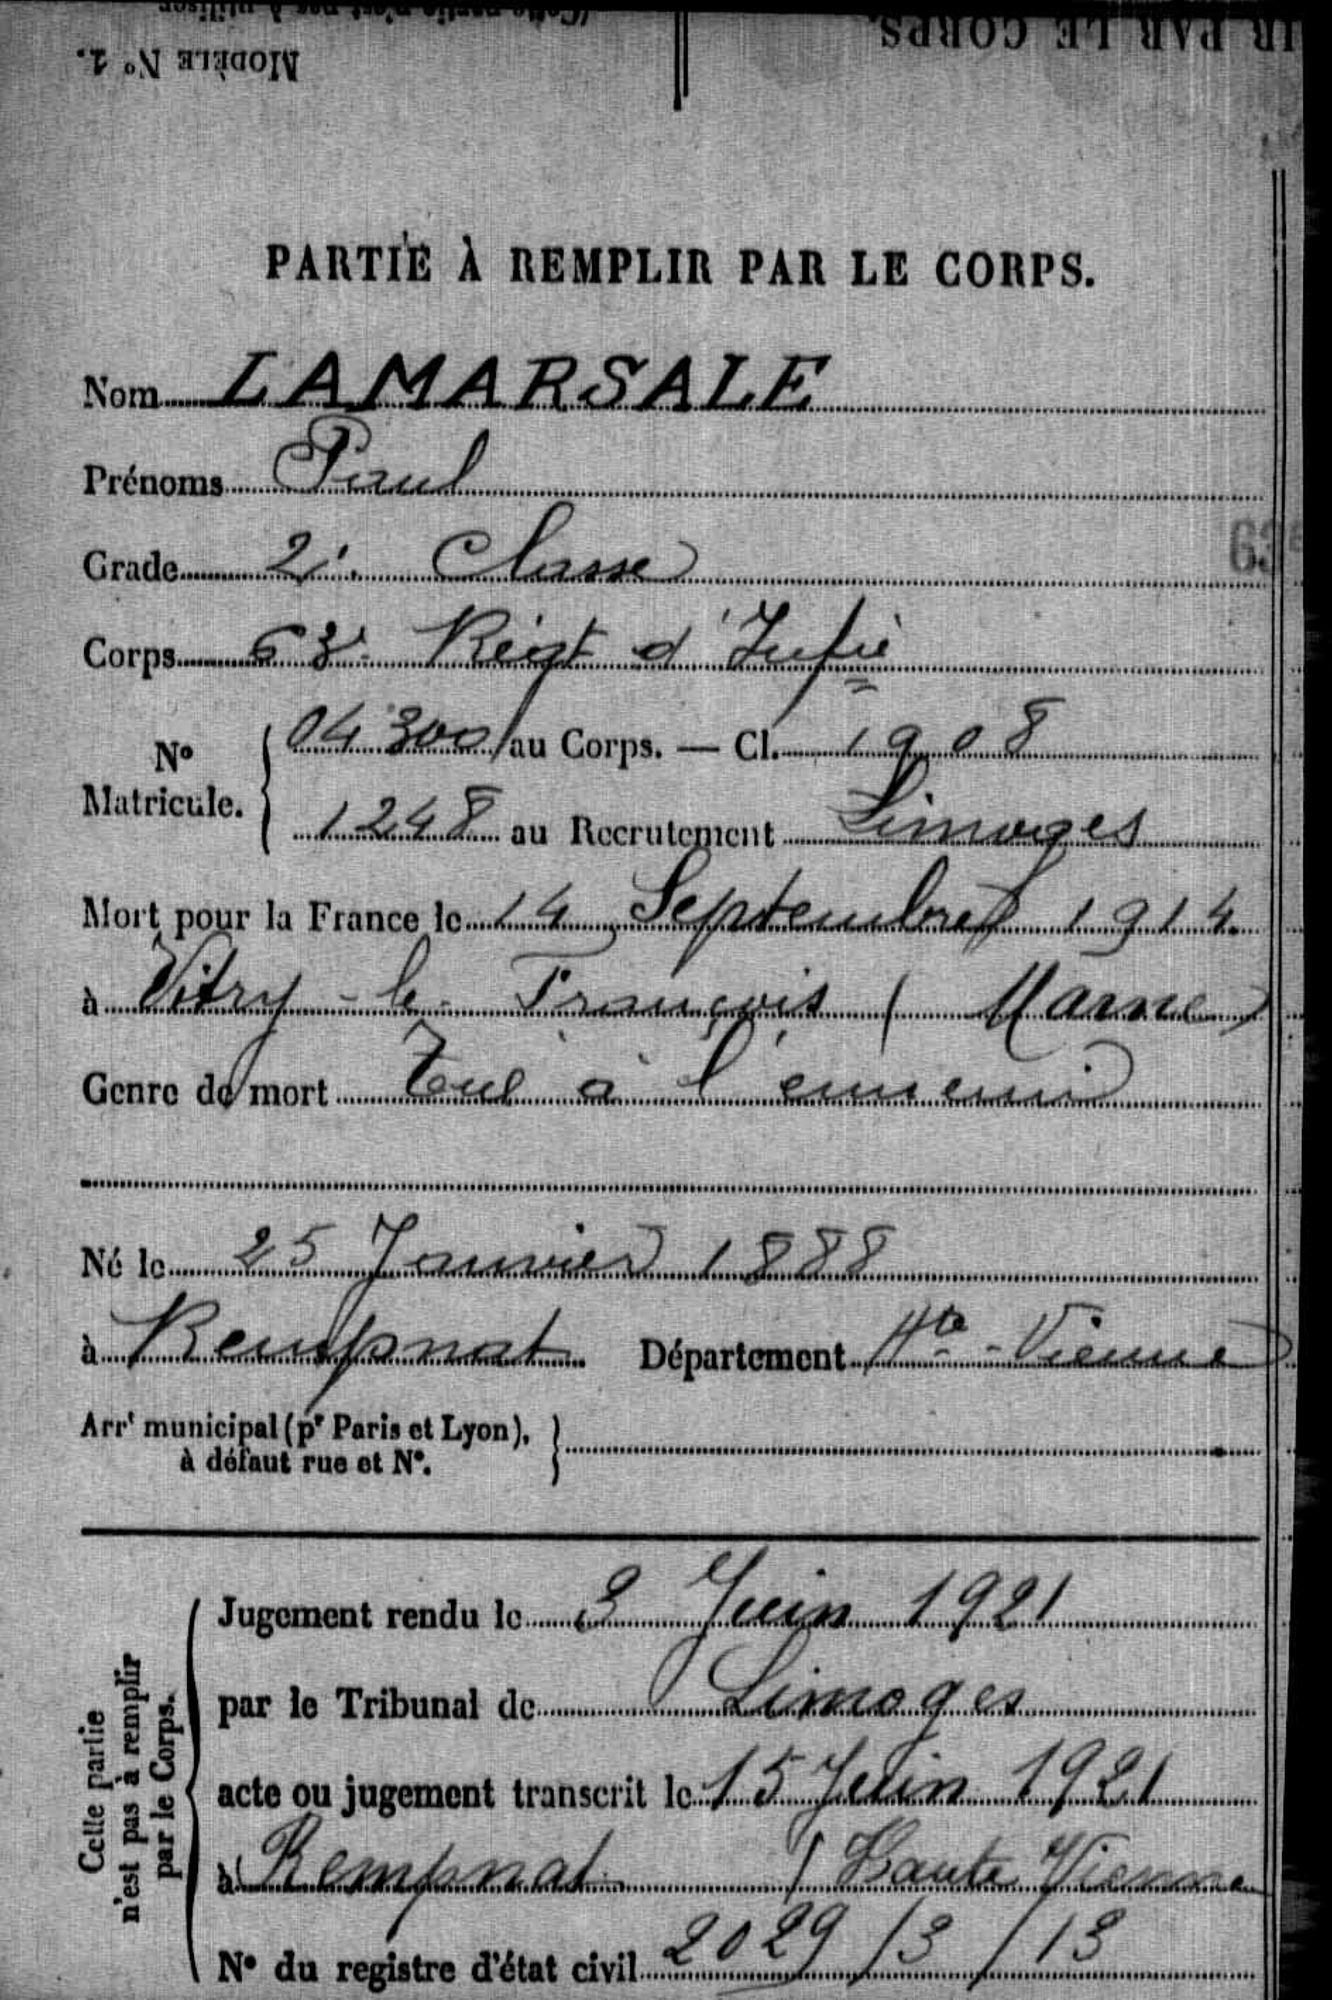 (Cette partie n'est pas à utiliser
MODÈLE N° 1.
IR PAR LE CORPS
PARTIE À REMPLIR PAR LE CORPS.
Nom LAMARSALE
Prénoms Paul
Grade 2e Classe
63e
Corps 63e Régt d'Infie
N° Matricule. { 04300 au Corps. — Cl. 1908
1248 au Recrutement Limoges
Mort pour la France le 14 Septembre 1914
à Vitry-le-François (Marne)
Genre de mort Tué à l'ennemi
Né le 25 Janvier 1888
à Rempnat Département Hte-Vienne
Arrt municipal (pr Paris et Lyon),
à défaut rue et N°.
Cette partie
n'est pas à remplir
par le Corps.
Jugement rendu le 3 Juin 1921
par le Tribunal de Limoges
acte ou jugement transcrit le 15 Juin 1921
à Rempnat (Haute Vienne
N° du registre d'état civil 2029/3/13